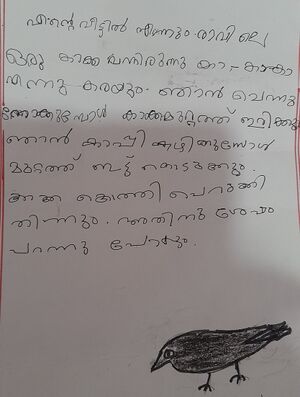 എന്റെ വീട്ടിൽ എന്നും രാവിലെ
ഒരു കാക്ക വന്നിരുന്നു കാ-കാകാ
എന്നു കരയും. ഞാൻ ചെന്നു
നോക്കുമ്പോൾ കാക്കമുറ്റത്ത് ഇരിക്കും
ഞാൻ കാപ്പി കുഴിക്കുമ്പോൾ
മുറ്റത്ത് ഇട്ട് കൊടുക്കും.
കാക്ക കൊത്തി പെറുക്കി
തിന്നും. അതിനു ശേഷം
പറന്നു പോകും.